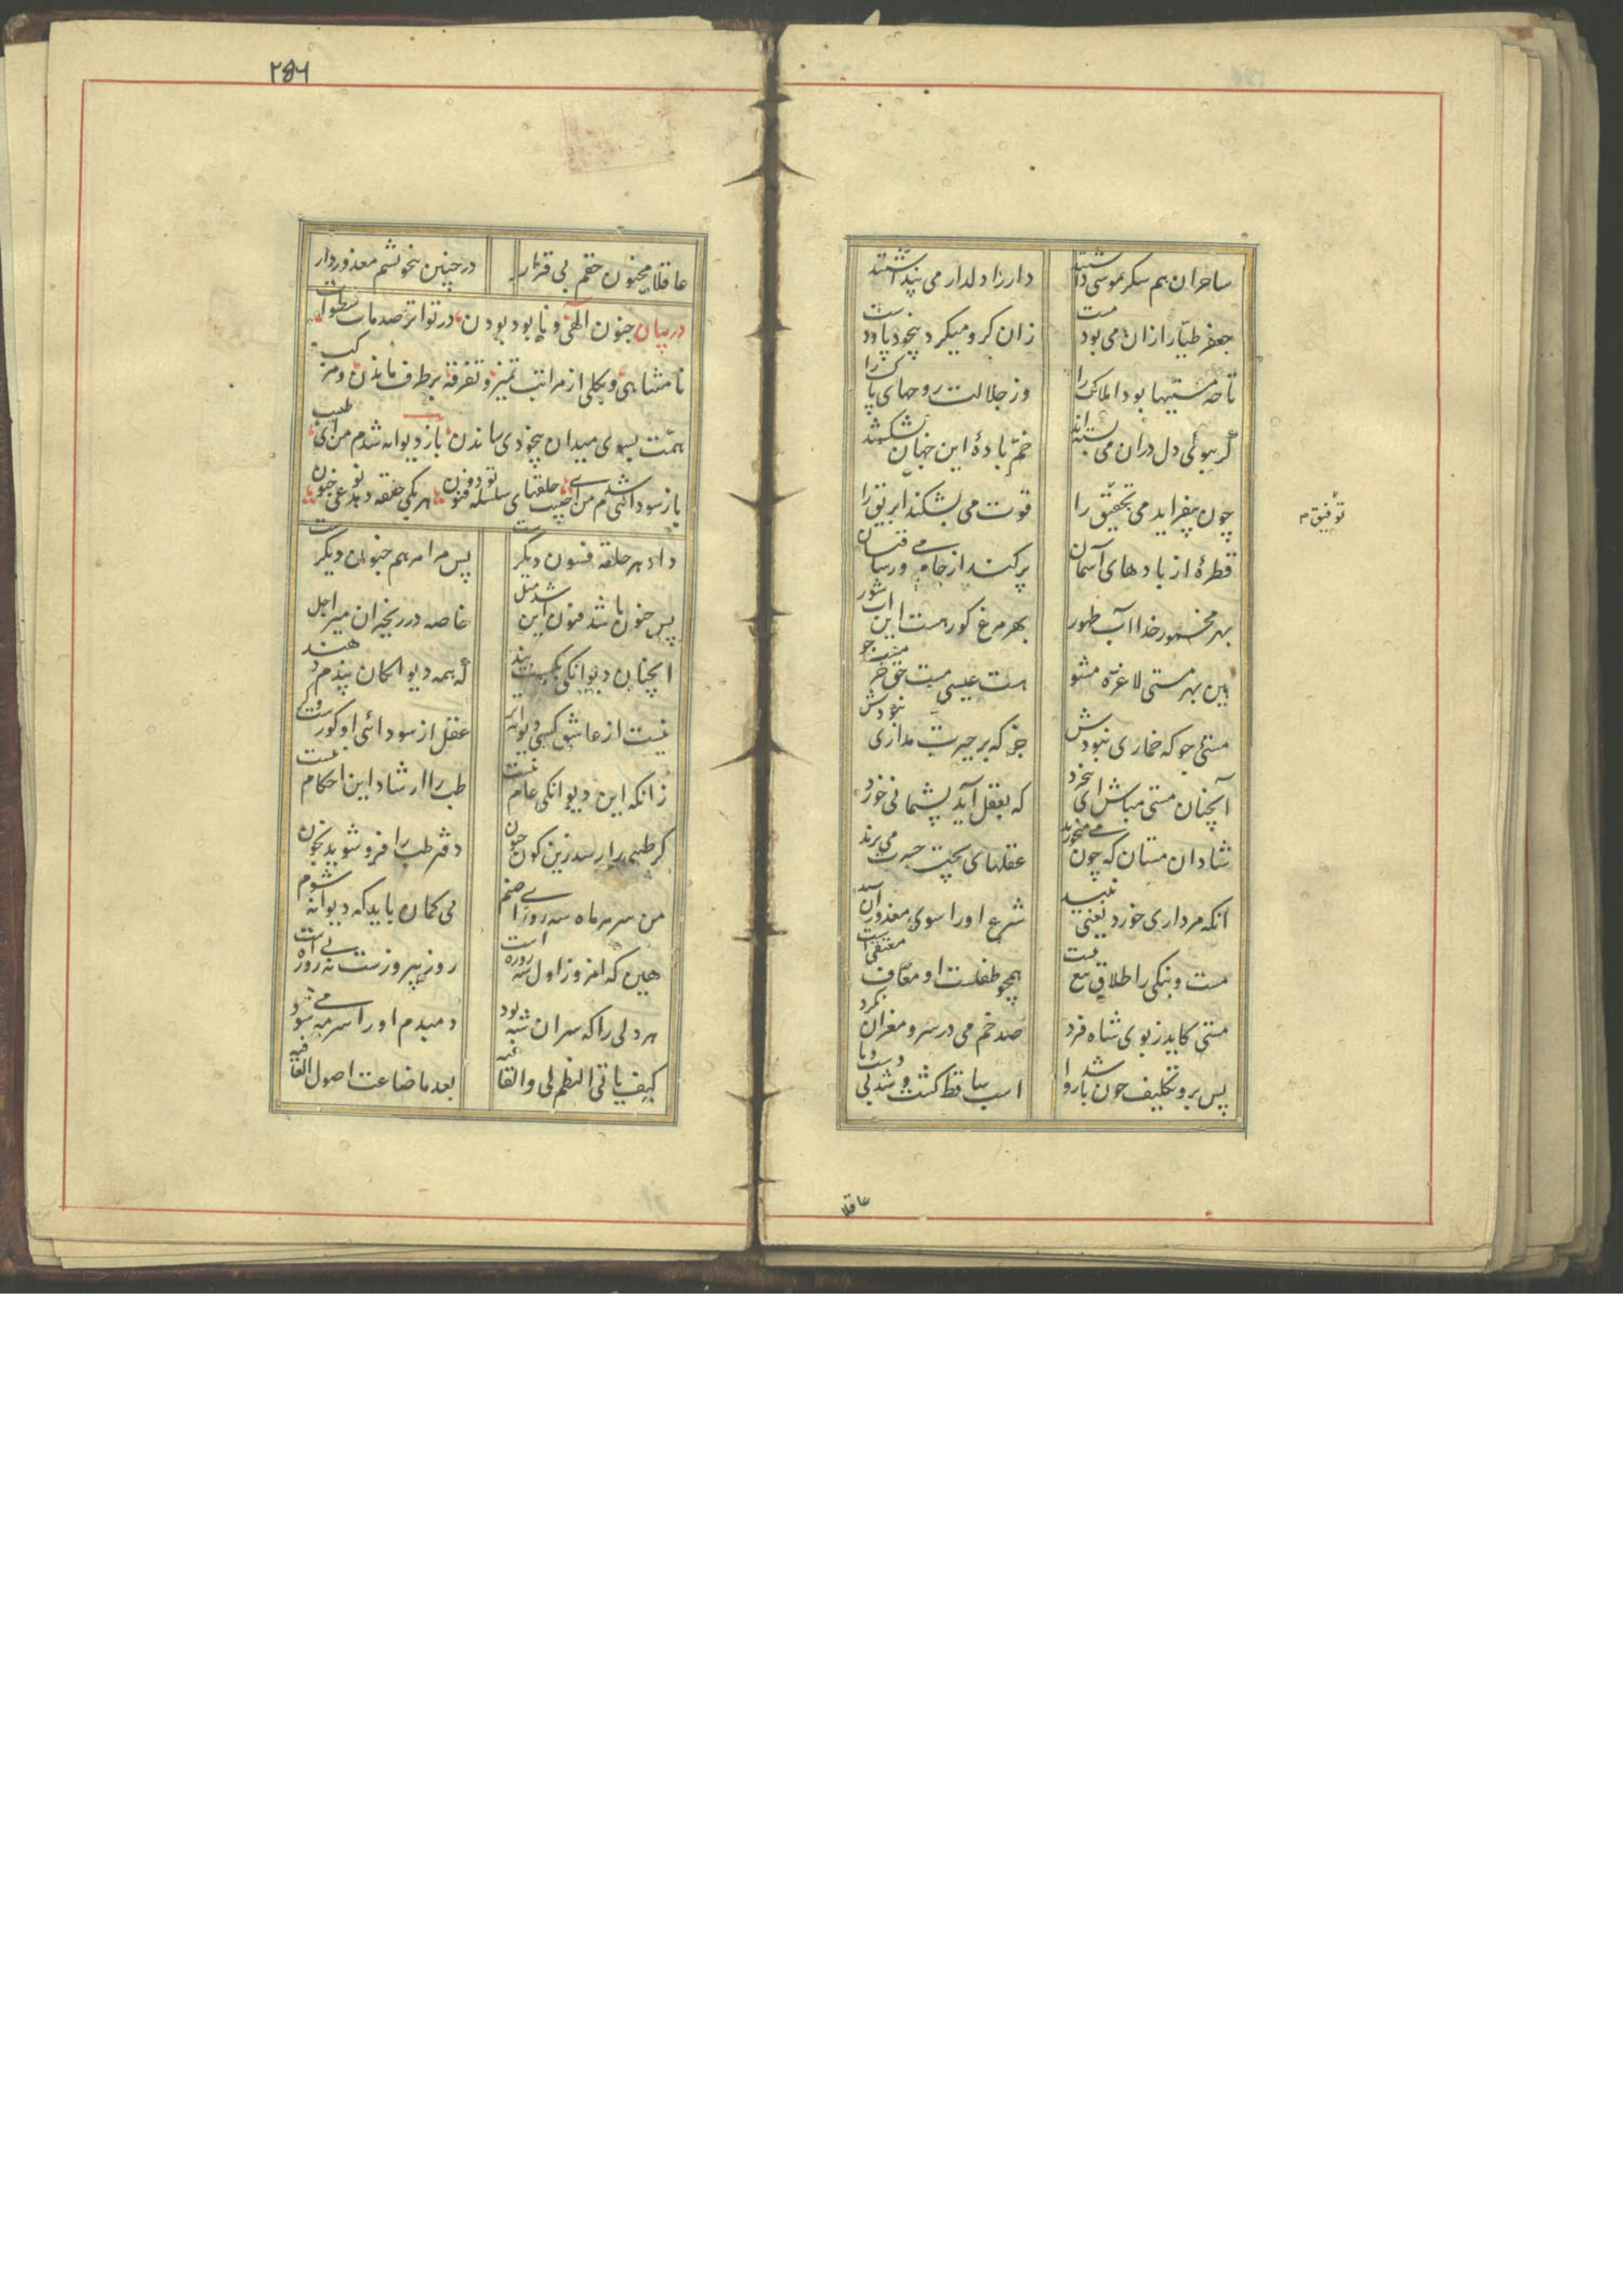 ساحران هم سکر موسی داشتند
دار را دلدار می پنداشتند
جعفر طیار ازان می بود مست
زان کرو میکرد بیخود پا و دست
تا چه مستیها بود املاک را
وز جلالت روحهای پاک را
که ببوئی دل دران می بسته اند
خم بادهٔ این جهان بشکسته اند
چون بیفزاید می تحقیق را
قوت می بشکند ابریق را
توفیق م
قطرهٔ از بادهای آسمان
پر کند از جام می ور ساقیان
بهر مخمور خدا آب طهور
بهر مرغ کورست این آب شور
هین بهر مستی دلا غره مشو
هست عیسی مست حق خر مست جو
مستئی جو که خماری نبودش
جز که بر حیرت مداری نبودش
آنچنان مستی مباش ای بیخرد
که بعقل آید پشیمانی خورد
شادان مستان که چون می میخورند
عقلهای پخته حسرت می برند
انکه مرداری خورد یعنی نبید
شرع او را سوی معذوران کشید
مست و بنگی را طلاق بیع نیست
همچو طفلست او معاف و معتقی است
مستی کاید ز بوی شاه فرد
صد خم می در سر و مغز آن نکرد
پس برو تکلیف چون باشد روا
اسب ساقط گشت و شد بی دست و پا
عاقلا
۲۵۶
عاقلا مجنون حقم بی قرار
در چنین بیخویشیم معذور دار
در بیان جنون الهی و نابود بودن در تواتر صدمات سطوات
نامتناهی و بکلی از مراتب تمیز و تفرقه بر طرف ماندن و مرکب
همت بسوی میدان بیخودی راندن باز دیوانه شدم من ای طبیب
باز سودائی شدم من ای حبیب حلقهای سلسله تو ذو فنون هر یکی حلقه دهد نوعی جنون
داد هر حلقه فنون دیگرست
پس مرا هر دم جنون دیگرست
پس جنون باشد فنون این شد مثل
خاصه در زنجیر ان میر اجل
انچنان دیوانگی بگسست بند
که همه دیوانگان پندم دهند
نیست از عاشق کسی دیوانه تر
عقل از سودائی او کورست و کر
زانکه این دیوانگی عام نیست
طب را ارشاد این احکام نیست
گر طبیبی را رسد زین گون جنون
دفتر طب را فرو شوید بخون
من سر هر ماه سه روز ای صنم
بی گمان باید که دیوانه شوم
هین که امروز اول سه روزه است
روز پیروزست نه پیروزه است
هر دلی را که سر ان شه بود
دمبدم او را سر مه می شود
کیف یاتی النظم لی والقافیه
بعد ما ضاعت اصول العافیه